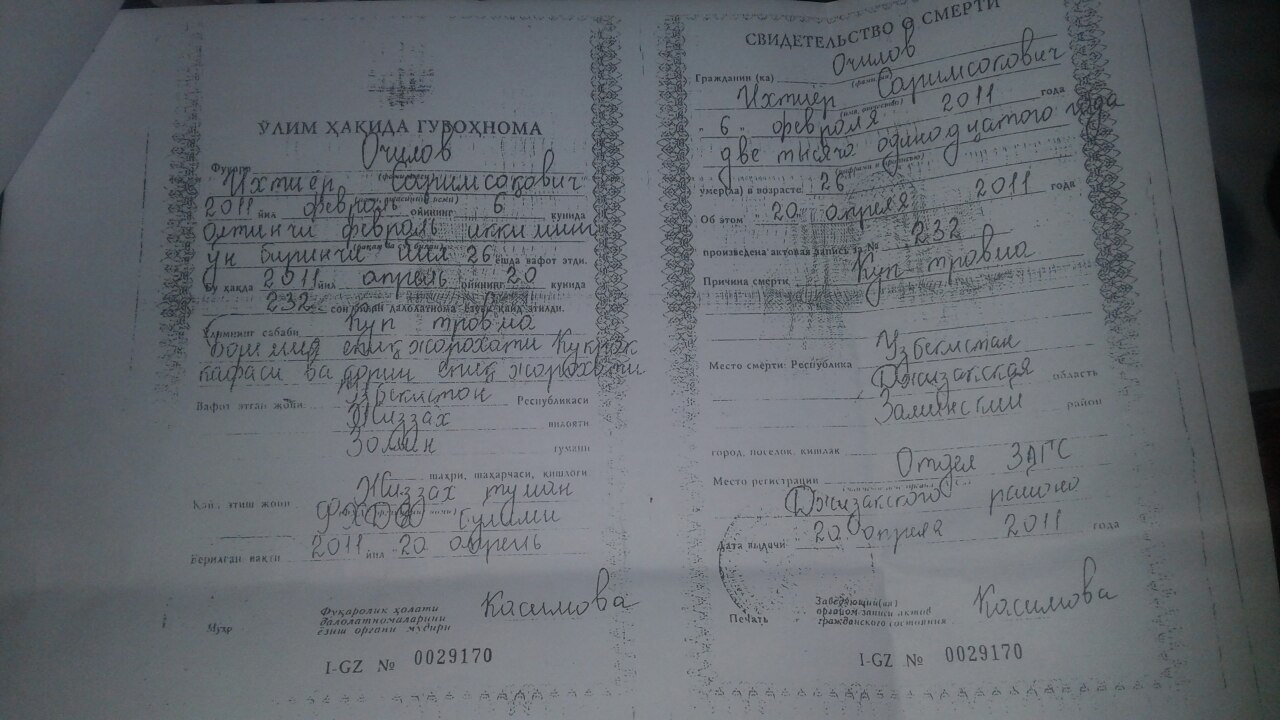 ӮЛИМ ҲАҚИДА ГУВОҲНОМА
Очилов
Фуқаро
Ихтиёр Саримсоқович
2011 йил февраль ойининг 6 кунида
олтинчи февраль икки минг
ўн биринчи йил 26 ёшда вафот этди.
Бу ҳақда 2011 йил апрель ойининг 20 кунида
232 сон билан далолатнома ёзуви қайд этилди.
Ўлимнинг сабаби Куп травма
бош мия ёпиқ жарохати Кукрак
кафаси ва қорин ёпиқ жарохати
Вафот этган жойи: Ўзбекистон Республикаси
Жиззах вилояти
Зомин тумани
шаҳри, шаҳарчаси, қишлоғи
Қайд этиш жойи Жиззах туман
ФХДЁ булими
Берилган вақти 2011 йил 20 апрель
Муҳр
Фуқаролик ҳолати
далолатномаларини
ёзиш органи мудири
Касимова
I-GZ № 0029170
СВИДЕТЕЛЬСТВО О СМЕРТИ
Очилов
Гражданин (ка)
(фамилия)
Ихтиёр Саримсокович
(имя, отчество)
" 6 " февраля 2011 года
две тысяча одинодцатого года
умер(ла) в возрасте 26
Об этом " 20 " апреля 2011 года
произведена актовая запись за № 232
Причина смерти Куп травма
Место смерти: Республика Узбекистан
Джизакская область
Зааминский район
город, поселок, кишлак
Место регистрации Отдел ЗАГС
Джизакского районо
Дата выдачи 20 апреля 2011 года
Печать
Заведующий(ая)
органом записи актов
гражданского состояния
Касимова
I-GZ № 0029170